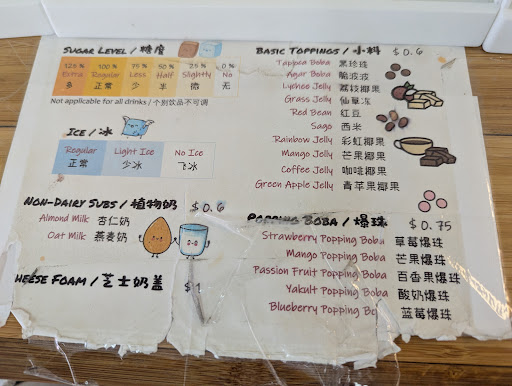 SUGAR LEVEL / 糖度
125 % 100 % 75 % 50 % 25 % 0 %
Extra Regular Less Half Slightly No
多 正常 少 半 微 无
Not applicable for all drinks / 个别饮品不可调
ICE / 冰
Regular Light Ice No Ice
正常 少冰 飞冰
NON-DAIRY SUBS / 植物奶 $ 0.6
Almond Milk 杏仁奶
Oat Milk 燕麦奶
HEESE FOAM / 芝士奶盖 $1
BASIC TOPPINGS / 小料 $ 0.6
Tapioca Boba 黑珍珠
Agar Boba 脆波波
Lychee Jelly 荔枝椰果
Grass Jelly 仙草冻
Red Bean 红豆
Sago 西米
Rainbow Jelly 彩虹椰果
Mango Jelly 芒果椰果
Coffee Jelly 咖啡椰果
Green Apple Jelly 青苹果椰果
POPPING BOBA / 爆珠 $ 0.75
Strawberry Popping Boba 草莓爆珠
Mango Popping Boba 芒果爆珠
Passion Fruit Popping Boba 百香果爆珠
Yakult Popping Boba 酸奶爆珠
Blueberry Popping Bo 蓝莓爆珠